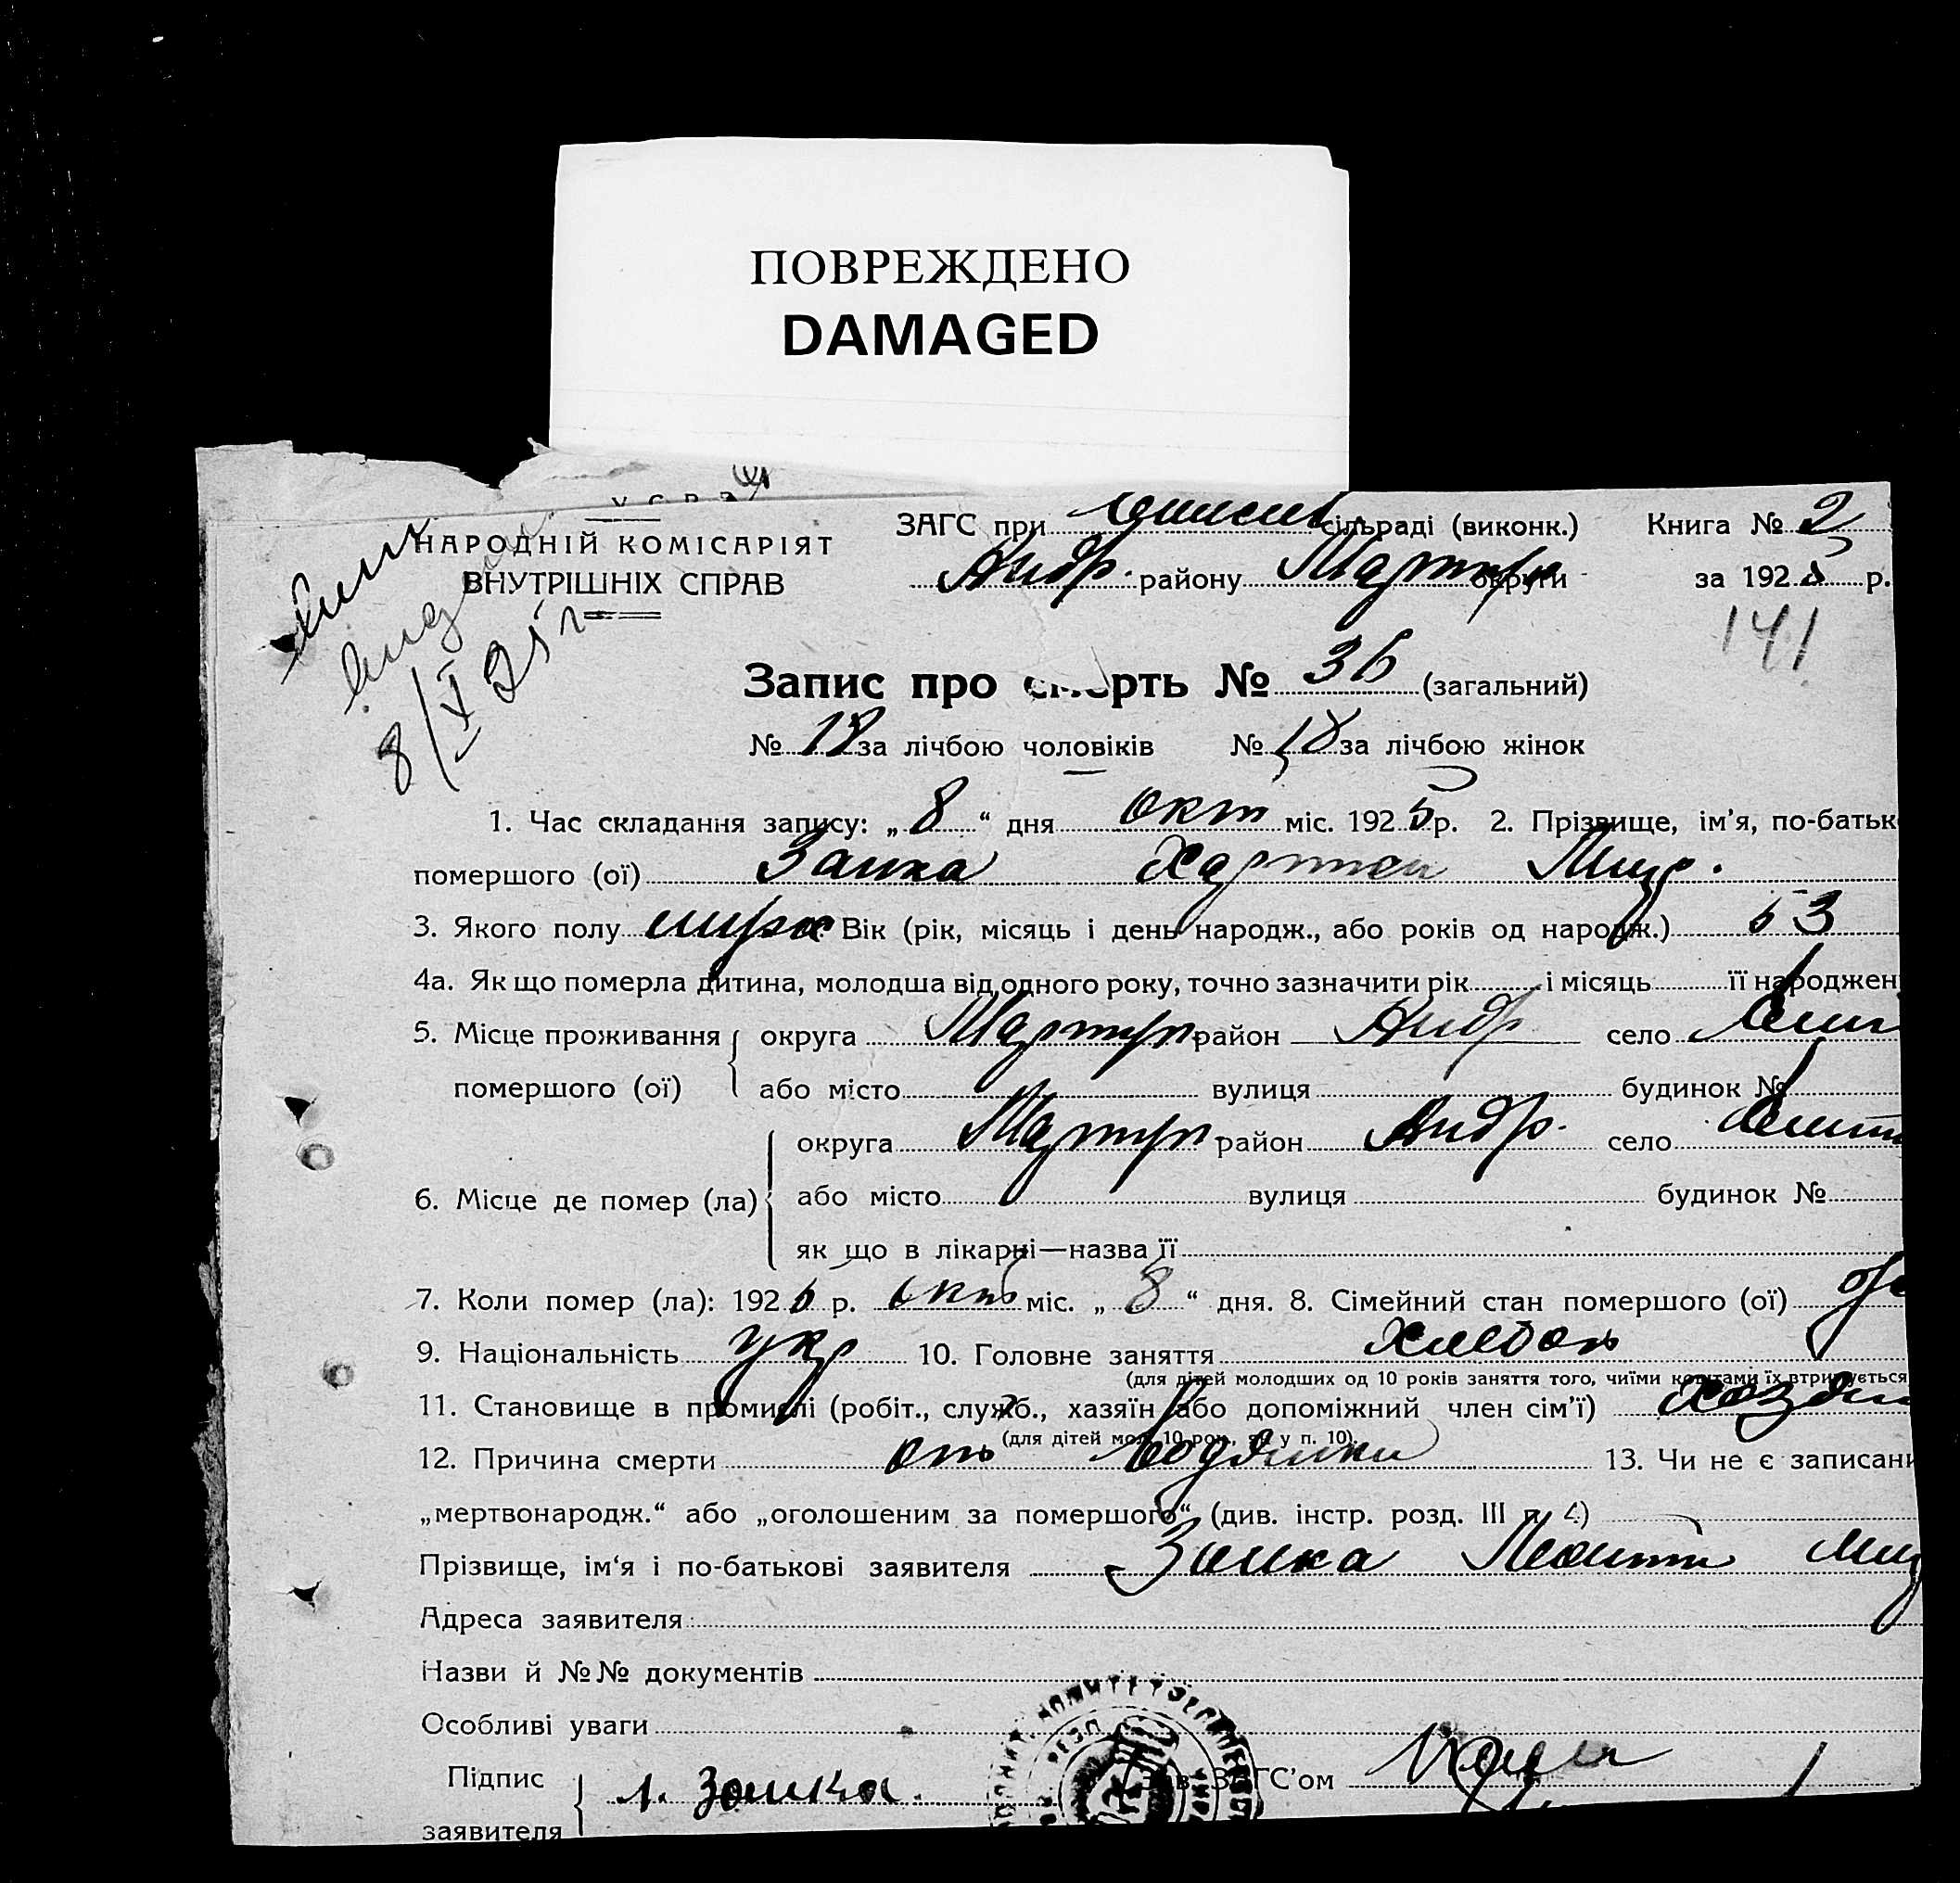 ПОВРЕЖДЕНО
DAMAGED
НАРОДНІЙ КОМІСАРІЯТ
ВНУТРІШНІХ СПРАВ
ЗАГС при сільраді (виконк.) Книга № 2
Андр. району Маріуп округи за 1925 р.
141
8/X 25 г
Запис про смерть № 36 (загальний)
№ 18 за лічбою чоловіків № 18 за лічбою жінок
1. Час складання запису: „ 8 “ дня окт міс. 1925 р. 2. Прізвище, ім’я, по-батьк
помершого (ої) Заика
3. Якого полу Вік (рік, місяць і день народж., або років од народж.) 53
4а. Як що померла дитина, молодша від одного року, точно зазначити рік і місяць її народжен
5. Місце проживання округа Маріуп район Андр село
помершого (ої) або місто вулиця будинок №
округа Маріуп район Андр. село
6. Місце де помер (ла) або місто вулиця будинок №
як що в лікарні—назва її
7. Коли помер (ла): 1925 р. окт міс. „ 8 “ дня. 8. Сімейний стан помершого (ої)
9. Національність укр 10. Головне заняття
(для дітей молодших од 10 років заняття того, чиїми коштами їх втримується
11. Становище в промислі (робіт., служб., хазяїн або допоміжний член сім’ї)
(для дітей мол. 10 рок., як у п. 10)
12. Причина смерти от водянки 13. Чи не є записани
„мертвонародж.“ або „оголошеним за помершого“ (див. інстр. розд. III п. 4)
Прізвище, ім‘я і по-батькові заявителя Заика
Адреса заявителя:
Назви й №№ документів
Особливі уваги
Підпис Л. Заика. Зав. ЗАГС’ом
заявителя